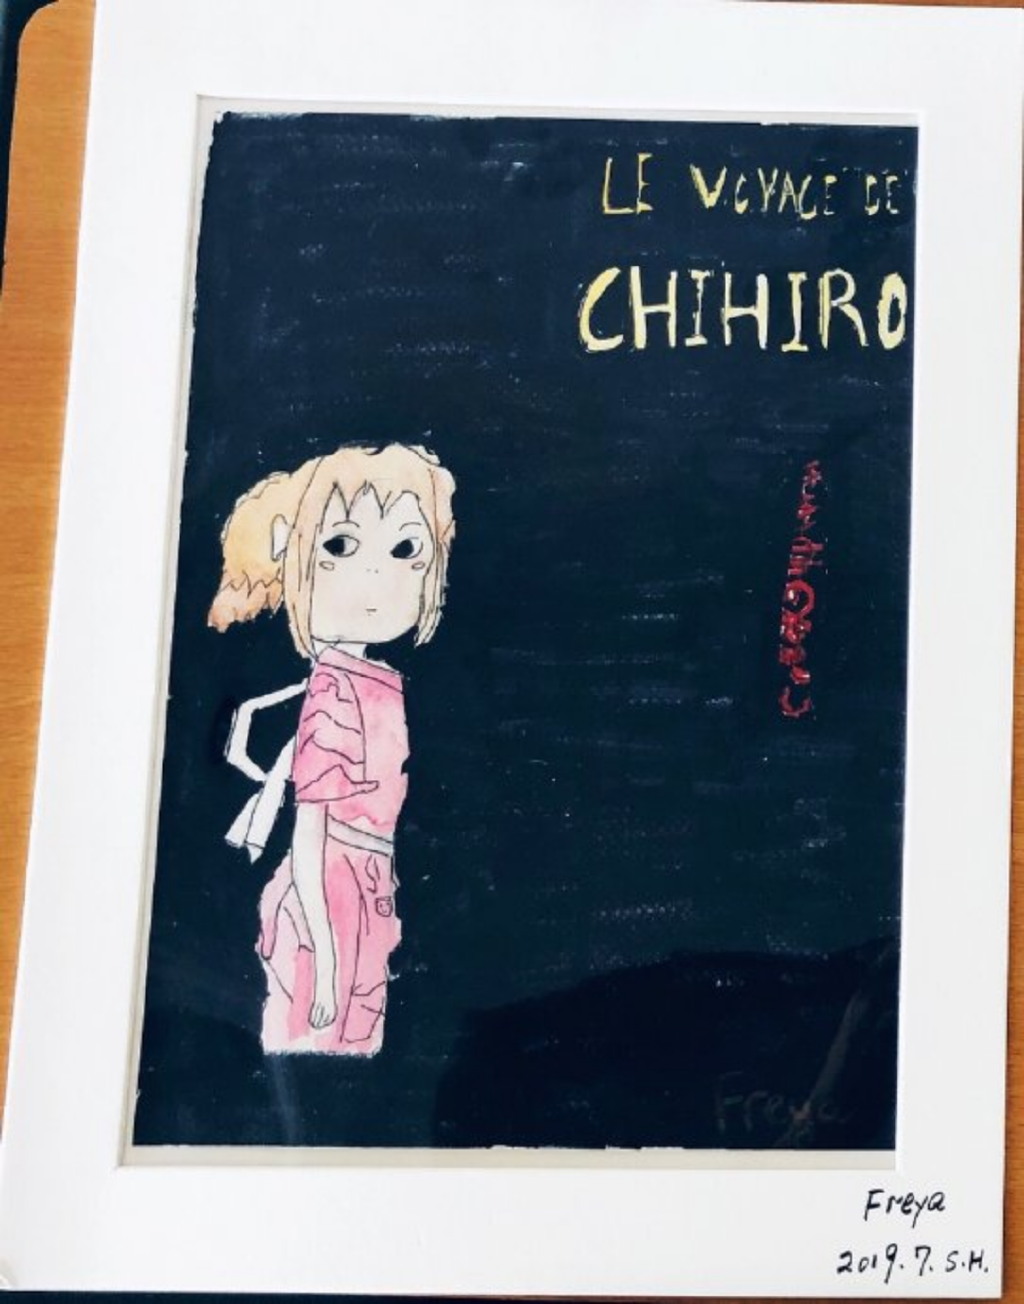 LE VOYAGE DE
CHIHIRO
Freya
Freya
2019.7. S.H.